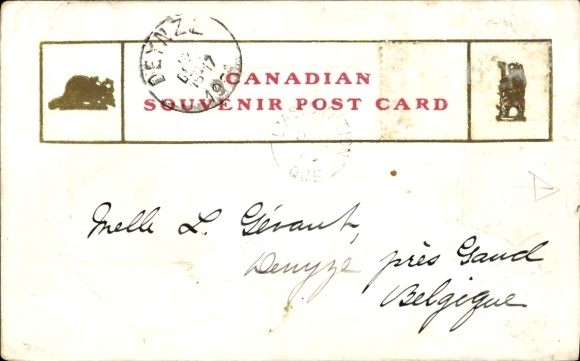 DEYNZE
CANADIAN
SOUVENIR POST CARD
QUE
Melle L. Gévaut,
Denyze près Gand
Belgique